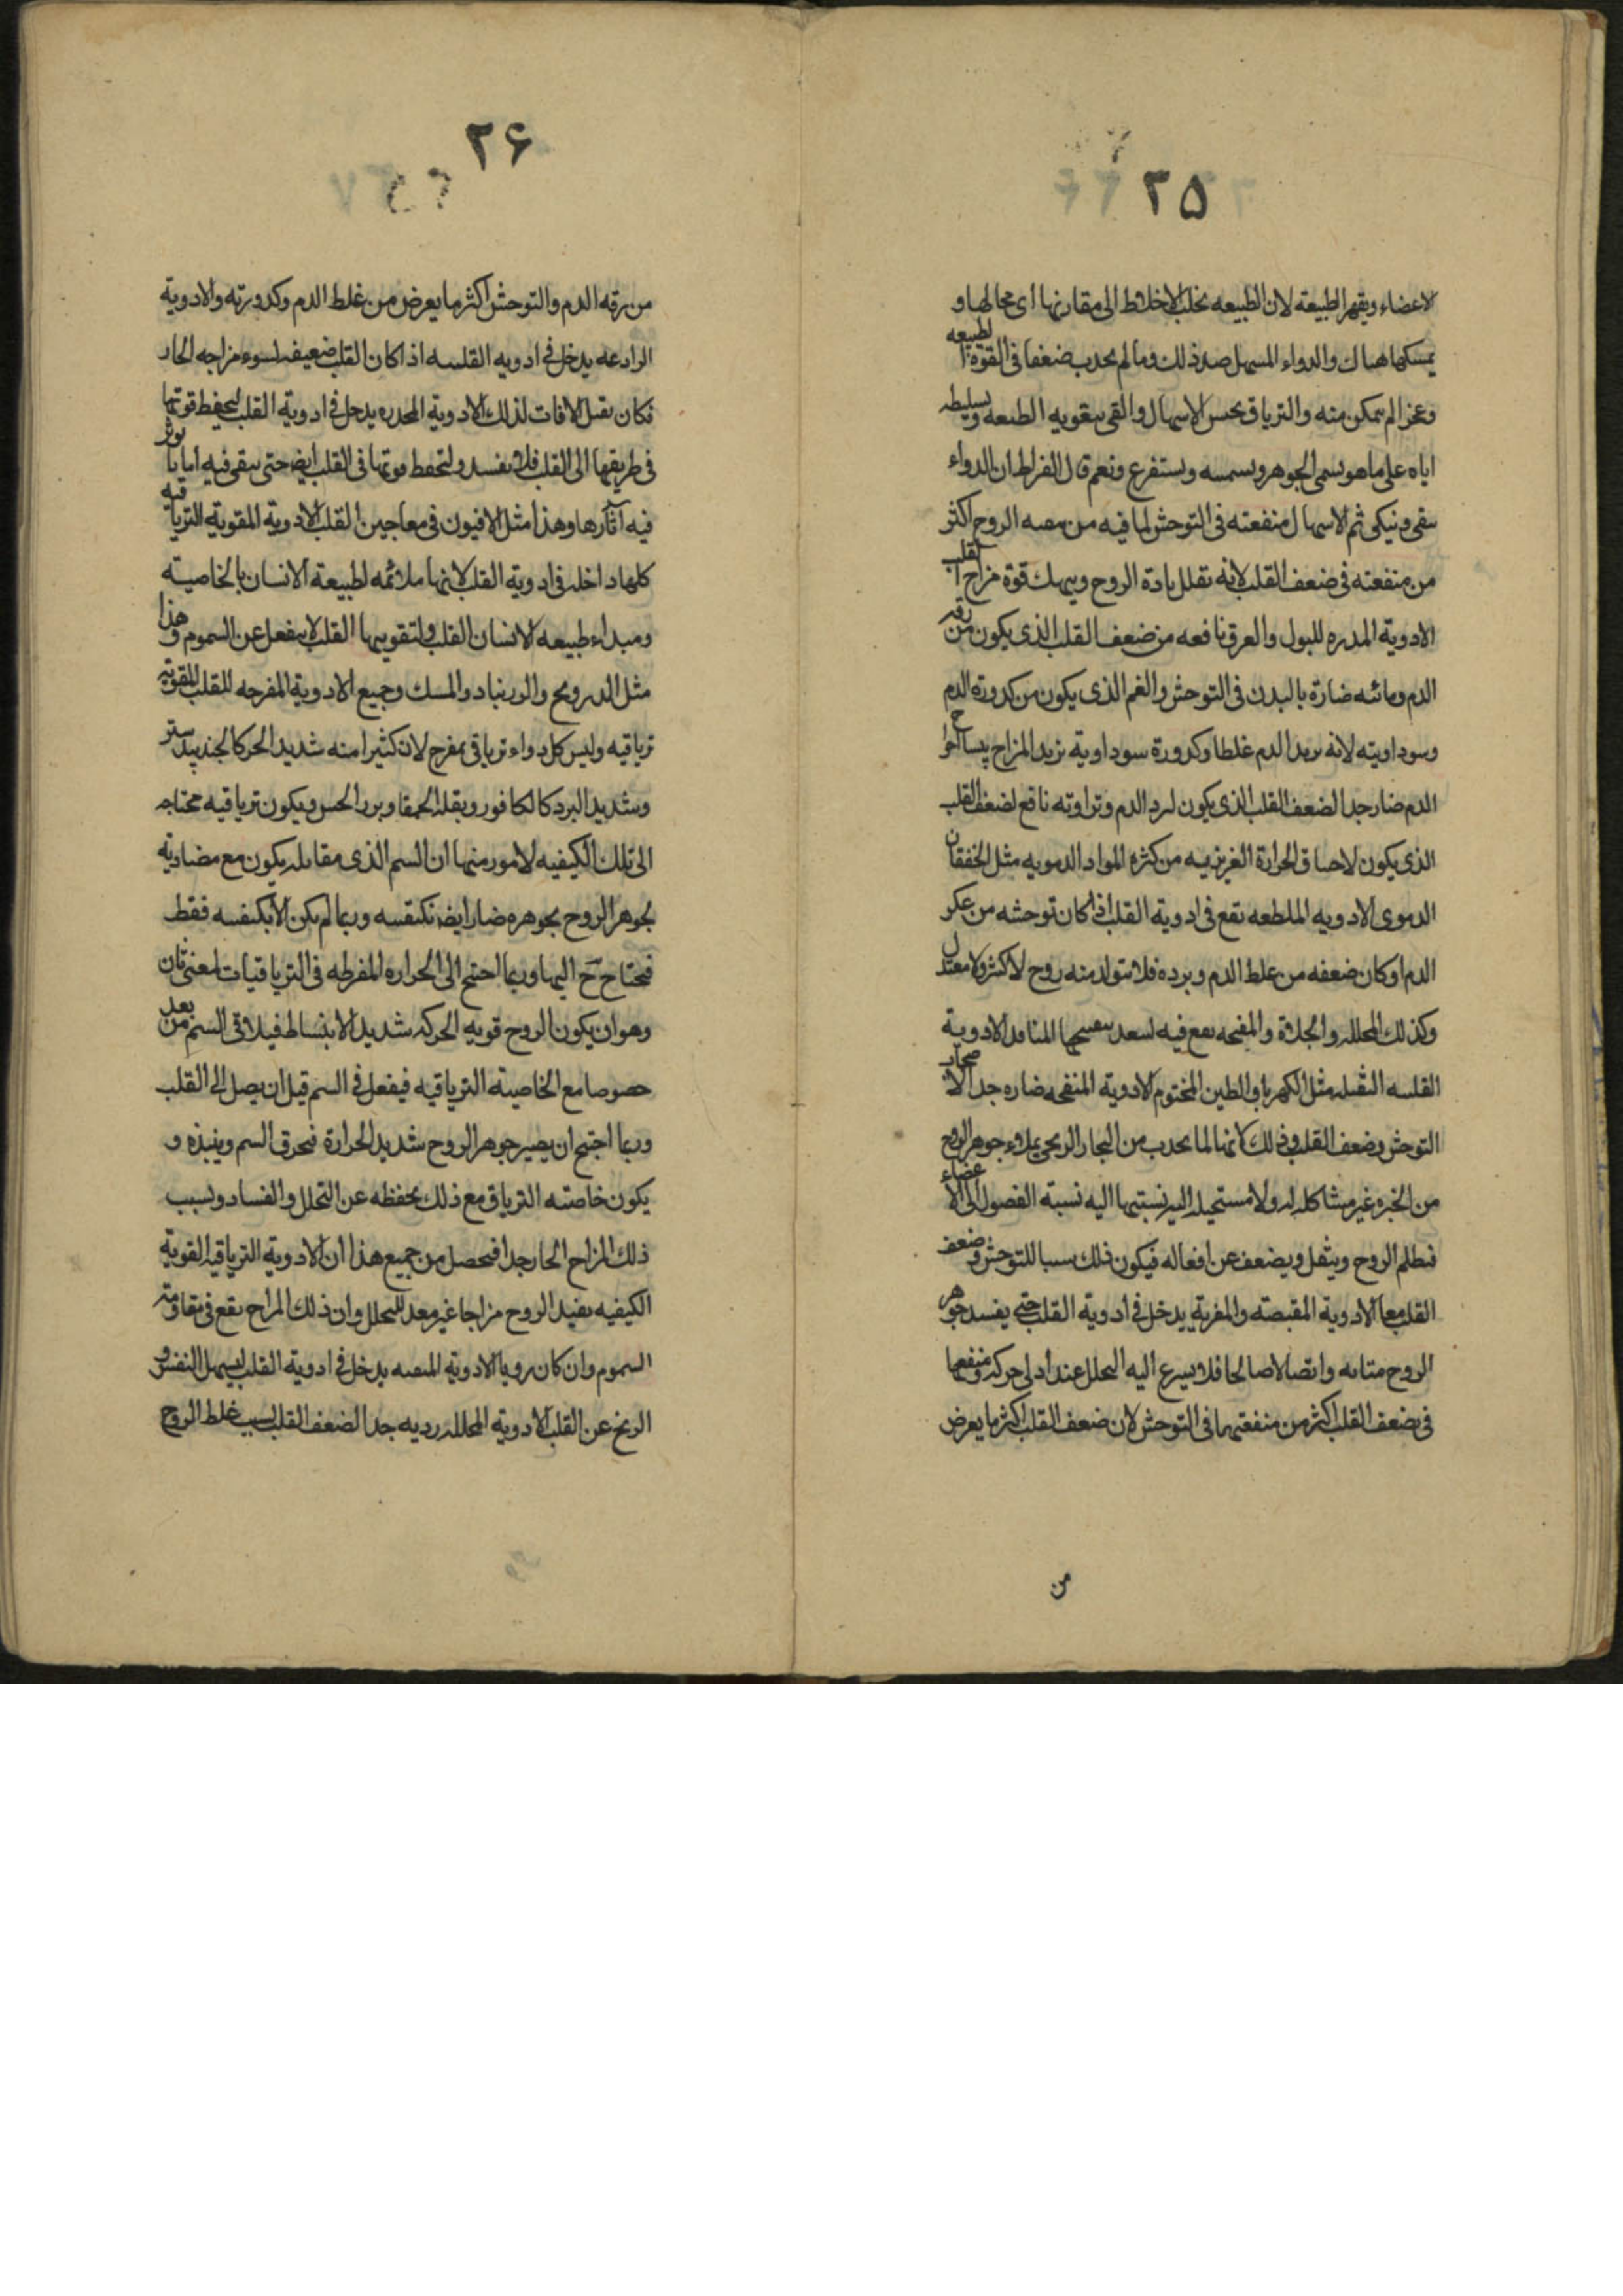 ٢٥
الاعضاء ويقهر الطبيعة لان الطبيعه تخلب الاخلاط الى مقارنها اى محالها و
يمسكها هناك والدواء المسهل ضد ذلك وما لم يحدب ضعفا فى القوة الطبيعه
وعجزا لم يمكن منه والترياق يحبس الاسهال والقى بتقويه الطبيعه وتسليطه
اياه على ما هو سمى الجوهر ويستفرغ ونعم قال ابقراط ان الدواء
ينقى وينكى ثم الاسهال منفعته فى التوحش لما فيه من الروح اكثر
من منفعته فى ضعف القلب لانه تقلل مادة الروح وينهك قوة مزاج القلب
الادوية المدره للبول والعرق نافعه من ضعف القلب الذى يكون من رقه
الدم ومائته ضارة بالبدن فى التوحش والغم الذى يكون من كدورة الدم
وسوداويته لانه يزيد الدم غلطا وكدورة سوداوية يزيد المزاج يبسا اخراج
الدم ضار جدا لضعف القلب الذى يكون لبرد الدم نافع لضعف القلب
الذى يكون لاحتناق الحرارة الغريزيه من كثره المواد الدمويه مثل الخفقان
الدموى الادويه الملطفه تقع فى ادوية القلب اذا كان توحشه من عكر
الدم او كان ضعفه من غلط الدم وبرده فلا يتولد منه روح لا كثير ولا معتدل
وكذلك المحلله والجلاة والمفتحه يقع فيه لتفتيحها المنافذ الادوية
القلبيه مثل الكهربا والطين المختوم الادوية المنفخه ضاره جدا لاصحاب
التوحش وضعف القلب وذلك لانها لما يحدب من البخار الريحى جوهر الروح
من ابخره غير مشاكله له ولا مستحيله اليه نسبتها اليه نسبة الفصول الى الاعضاء
فتظلم الروح ويثقل ويضعف عن افعاله فيكون ذلك سببا للتوحش وضعف
القلب معا الادوية المقبضته والمغرية يدخل فى ادوية القلب حتى يفسد جوهر
الروح متانه واتصالا صالحا فلا يسرع اليه التحلل عند ادنى حركه ومنفعتها
فى ضعف القلب اكثر من منفعتها فى التوحش لان ضعف القلب اكثر ما يعرض
من
٢۶
من رقه الدم والتوحش اكثر ما يعرض من غلط الدم وكدورته والادوية
الرادعه يدخل فى ادويه القلبيه اذا كان القلب ضعيفا لسوء مزاجه الحار
فكان يقبل الافات لذلك الادوية المخدره يدخل فى ادوية القلب ليحفظ قوتها
فى طريقها الى القلب فلا يفسد ولتحفظ قوتها فى القلب ايضا حتى يبقى فيه اياما يؤثر
فيه آثارها وهذا مثل الافيون فى معاجين القلب الادوية المقوية الترياقيه
كلها داخله فى ادوية القلب لانها ملائمه لطبيعة الانسان بالخاصيته
ومبداء طبيعه الانسان القلب ولتقويتها القلب لا ينفعل عن السموم وهذا
مثل الدرونج والزرنباد والمسك وجميع الادوية المفرحه للقلب المقويه
ترياقيه وليس كل دواء ترياقى بمفرح لان كثيرا منه شديد الحر كالجندبيدستر
وشديد البرد كالكافور وبقله الحمقا وبزر الخس ويكون ترياقيه محتاجه
الى تلك الكيفيه لامور منها ان السم الذى مقابله يكون مع مضادته
لجوهر الروح بجوهره ضارا ايضا بكيفيه وربما لم يكن الا بكيفيه فقط
فيحتاج ح اليها وربما احتيج الى الحراره المفرطه فى الترياقيات لمعنى ثان
وهو ان يكون الروح قويه الحركه شديد الانبساط فيلاقى السم من بعد
خصوصا مع الخاصيته الترياقيه فيفعل فى السم قبل ان يصل الى القلب
وربما احتيج ان يصير جوهر الروح شديد الحرارة فيحرق السم وينبذه و
يكون خاصته الترياق مع ذلك يحفظه عن التحلل والفساد ولسبب
ذلك المزاج الحار جدا فيحصل من جميع هذا ان الادوية الترياقيه القوية
الكيفيه يفيد الروح مزاجا غير معد للتحلل وان ذلك المزاج يقع فى مقاومته
السموم وان كان رويا الادوية يدخل فى ادوية القلب ليسهل النفس و
الريح عن القلب الادوية المحلله رديه جدا لضعف القلب لسبب غلط الروح